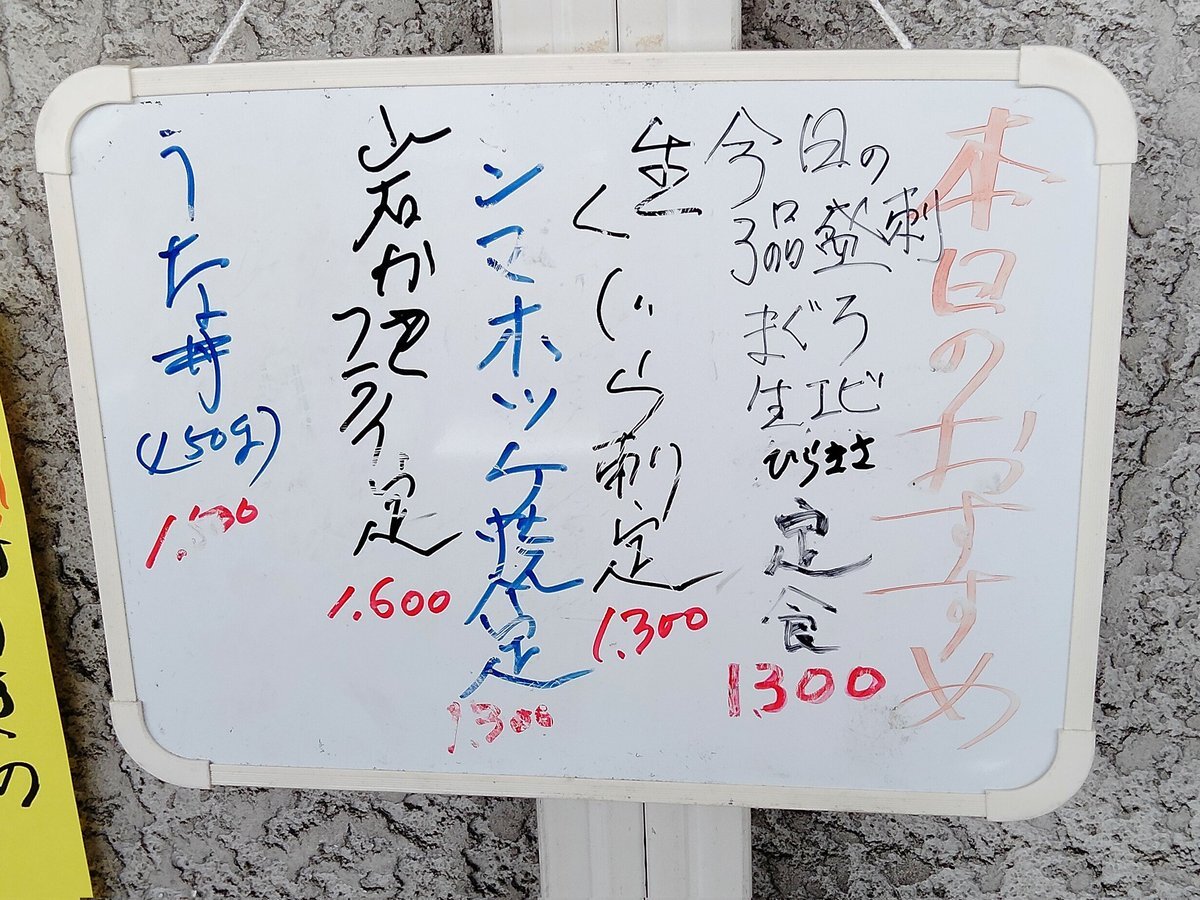 本日のおすすめ
今日の
3品盛刺
まぐろ
生エビ
ひらまさ
定食
1300
生くじら刺定
1.300
シマホッケ焼定
1.300
岩かき
フライ定
1.600
うちょ丼
(150g)
の